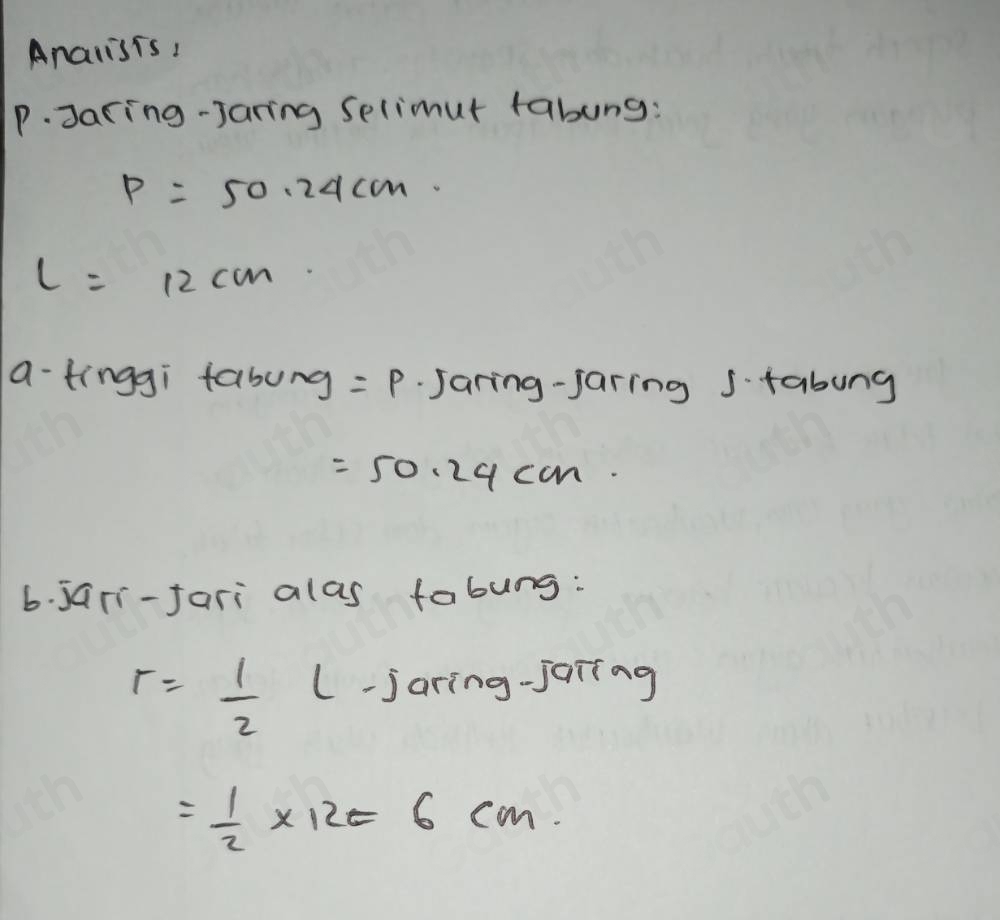 Analisis:
P. Jaring-Jaring Selimut tabung:
P = 50.24 cm.
L = 12 cm.
a- tinggi tabung = P. Jaring-jaring S. tabung
= 50.24 cm.
b. jari-jari alas tabung:
r = 1/2 L - jaring-jaring
= 1/2 x 12 = 6 cm.